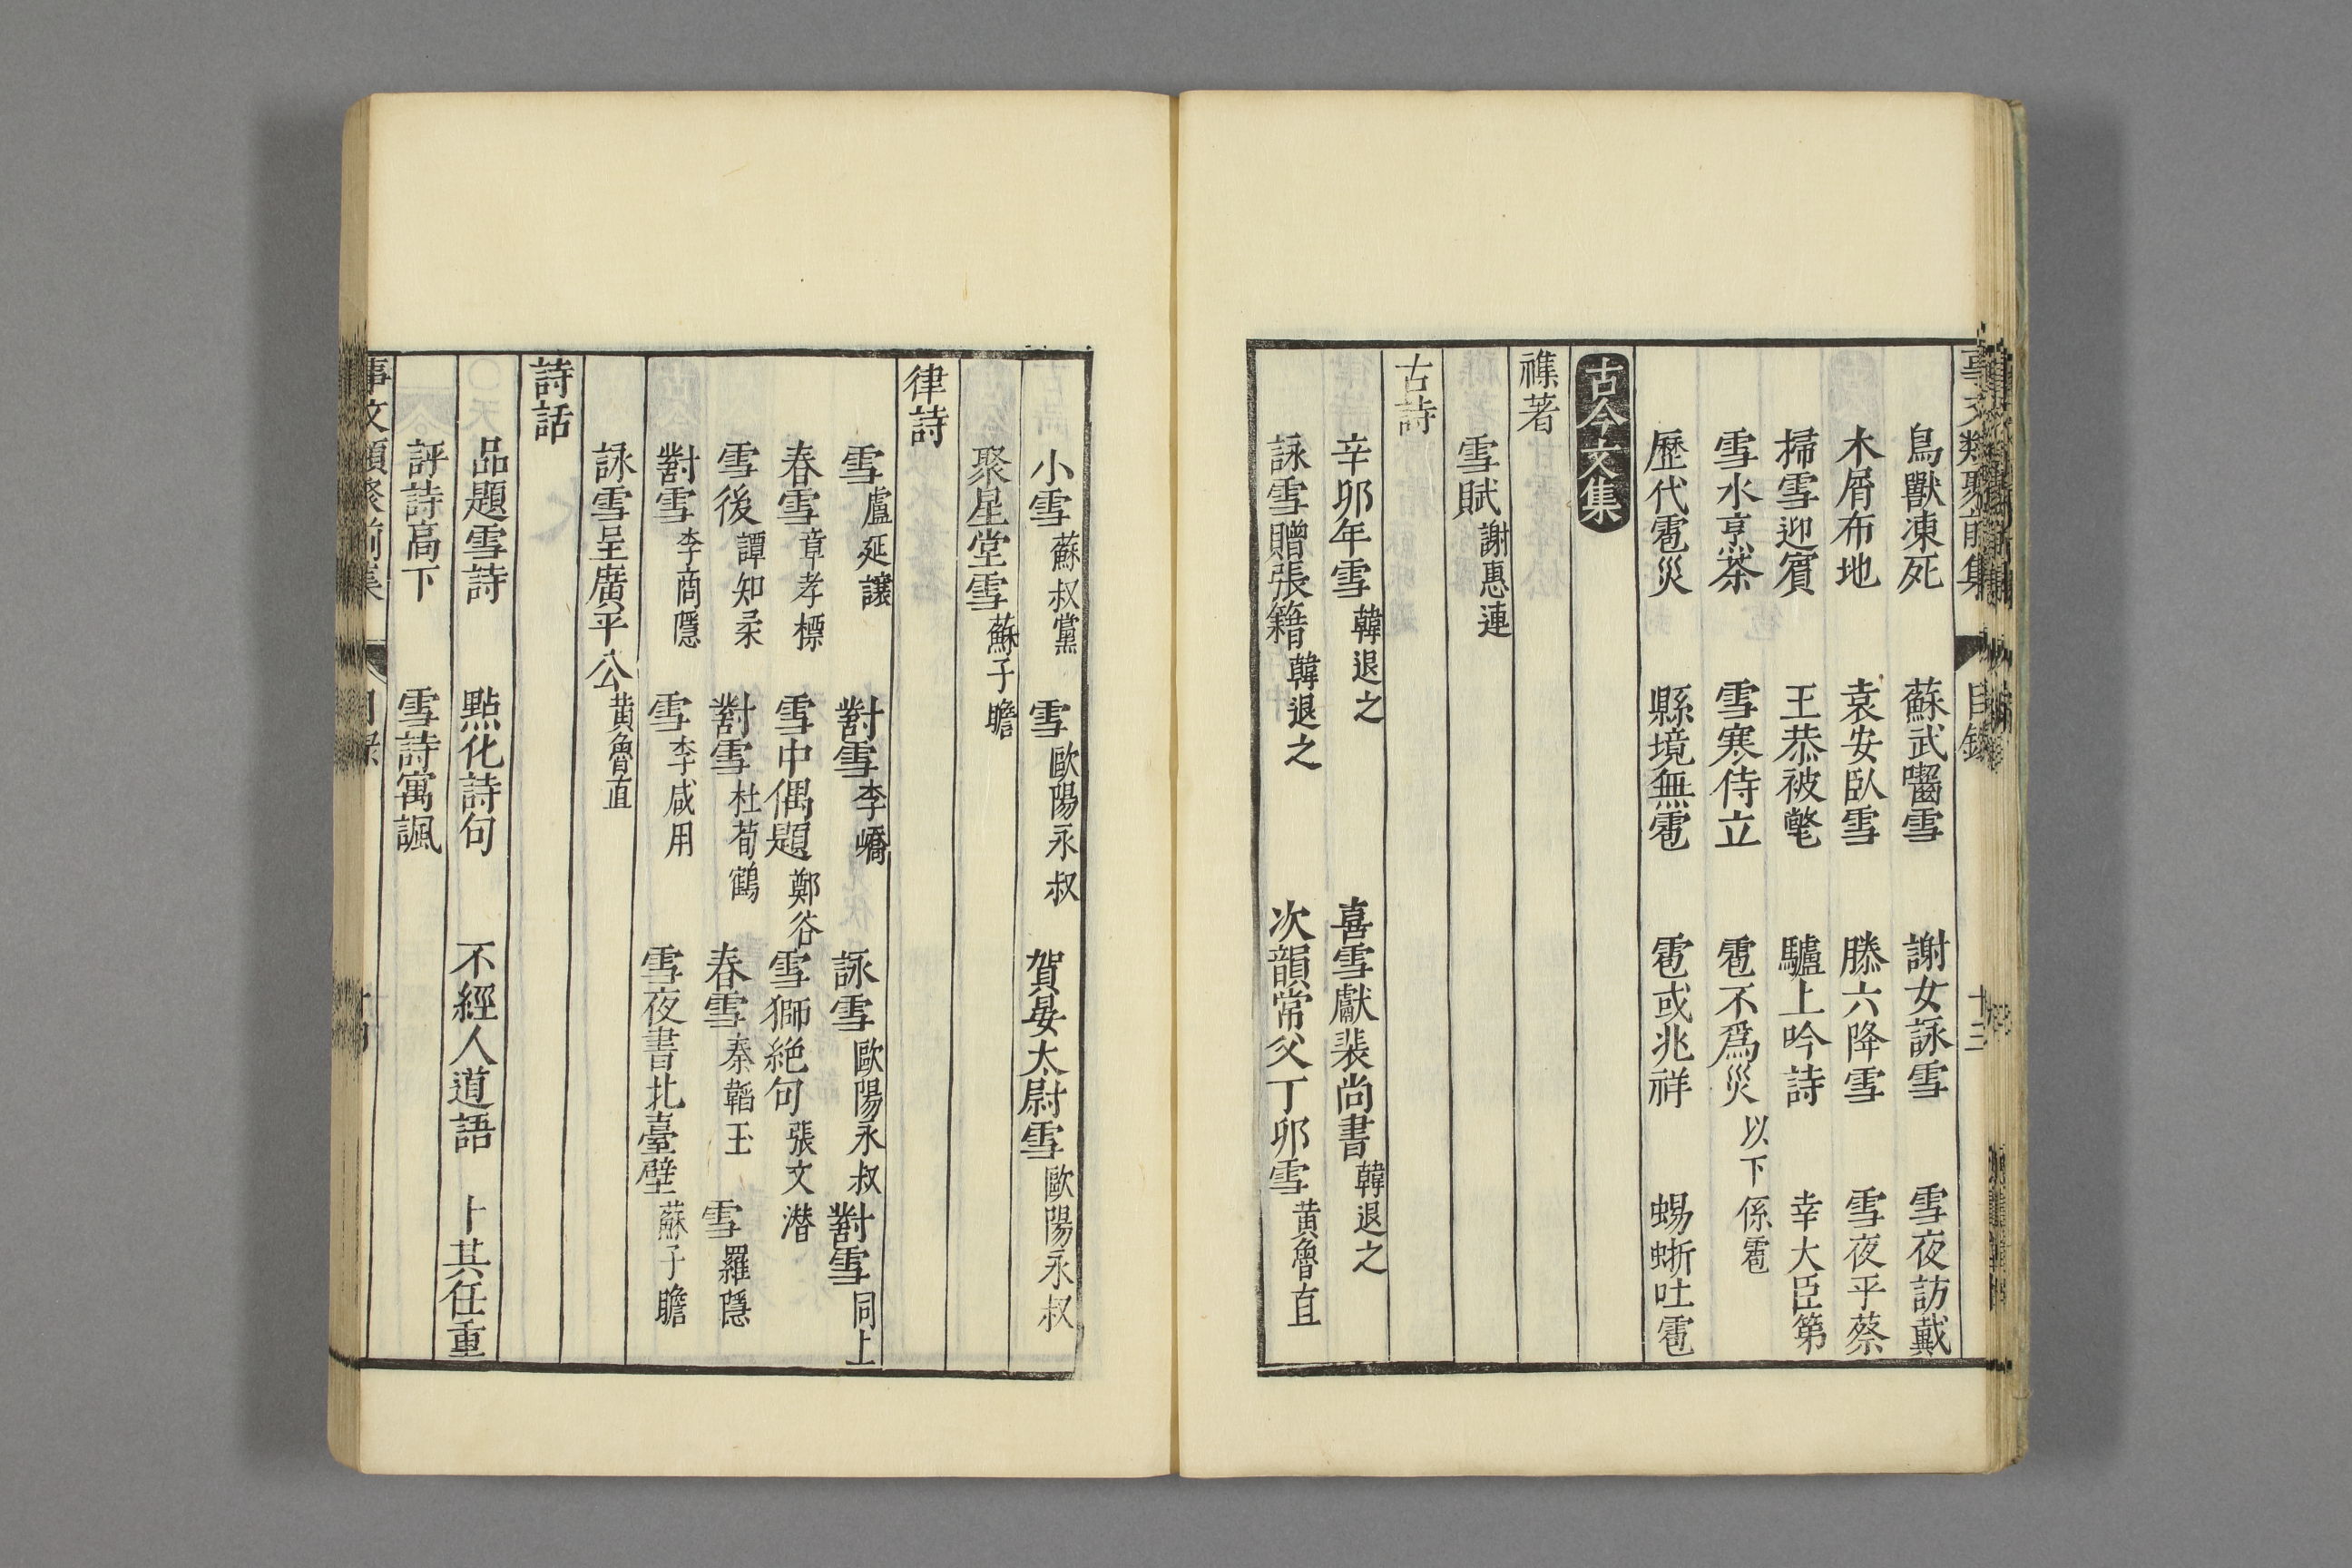 事文類聚前集 目錄 十三
鳥獸凍死 蘇武嚙雪 謝女詠雪 雪夜訪戴
木屑布地 袁安臥雪 滕六降雪 雪夜平蔡
掃雪迎賓 王恭被氅 驢上吟詩 幸大臣第
雪水烹茶 雪寒侍立 雹不爲災以下係雹
歷代雹災 縣境無雹 雹或兆祥 蜴蜥吐雹
古今文集
襍著
雪賦謝惠連
古詩
辛卯年雪韓退之 喜雪獻裴尚書韓退之
詠雪贈張籍韓退之 次韻常父丁卯雪黃魯直
小雪蘇叔黨 雪歐陽永叔 賀晏太尉雪歐陽永叔
聚星堂雪蘇子瞻
律詩
雪盧延讓 對雪李嶠 詠雪歐陽永叔 對雪同上
春雪章孝標 雪中偶題鄭谷 雪獅絶句張文潛
雪後譚知柔 對雪杜荀鶴 春雪秦韜玉 雪羅隱
對雪李商隱 雪李咸用 雪夜書北臺壁蘇子瞻
詠雪呈廣平公黃魯直
詩話
品題雪詩 點化詩句 不經人道語 卜其任重
評詩高下 雪詩寓諷
事文類聚前集 目錄